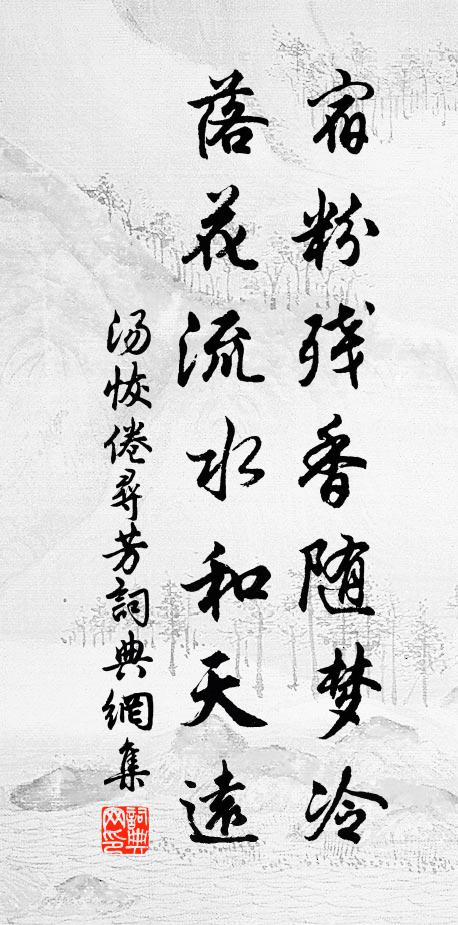 宿粉残香随梦冷
落花流水和天遠
汤恢倦尋芳詞典網集
詞典网印